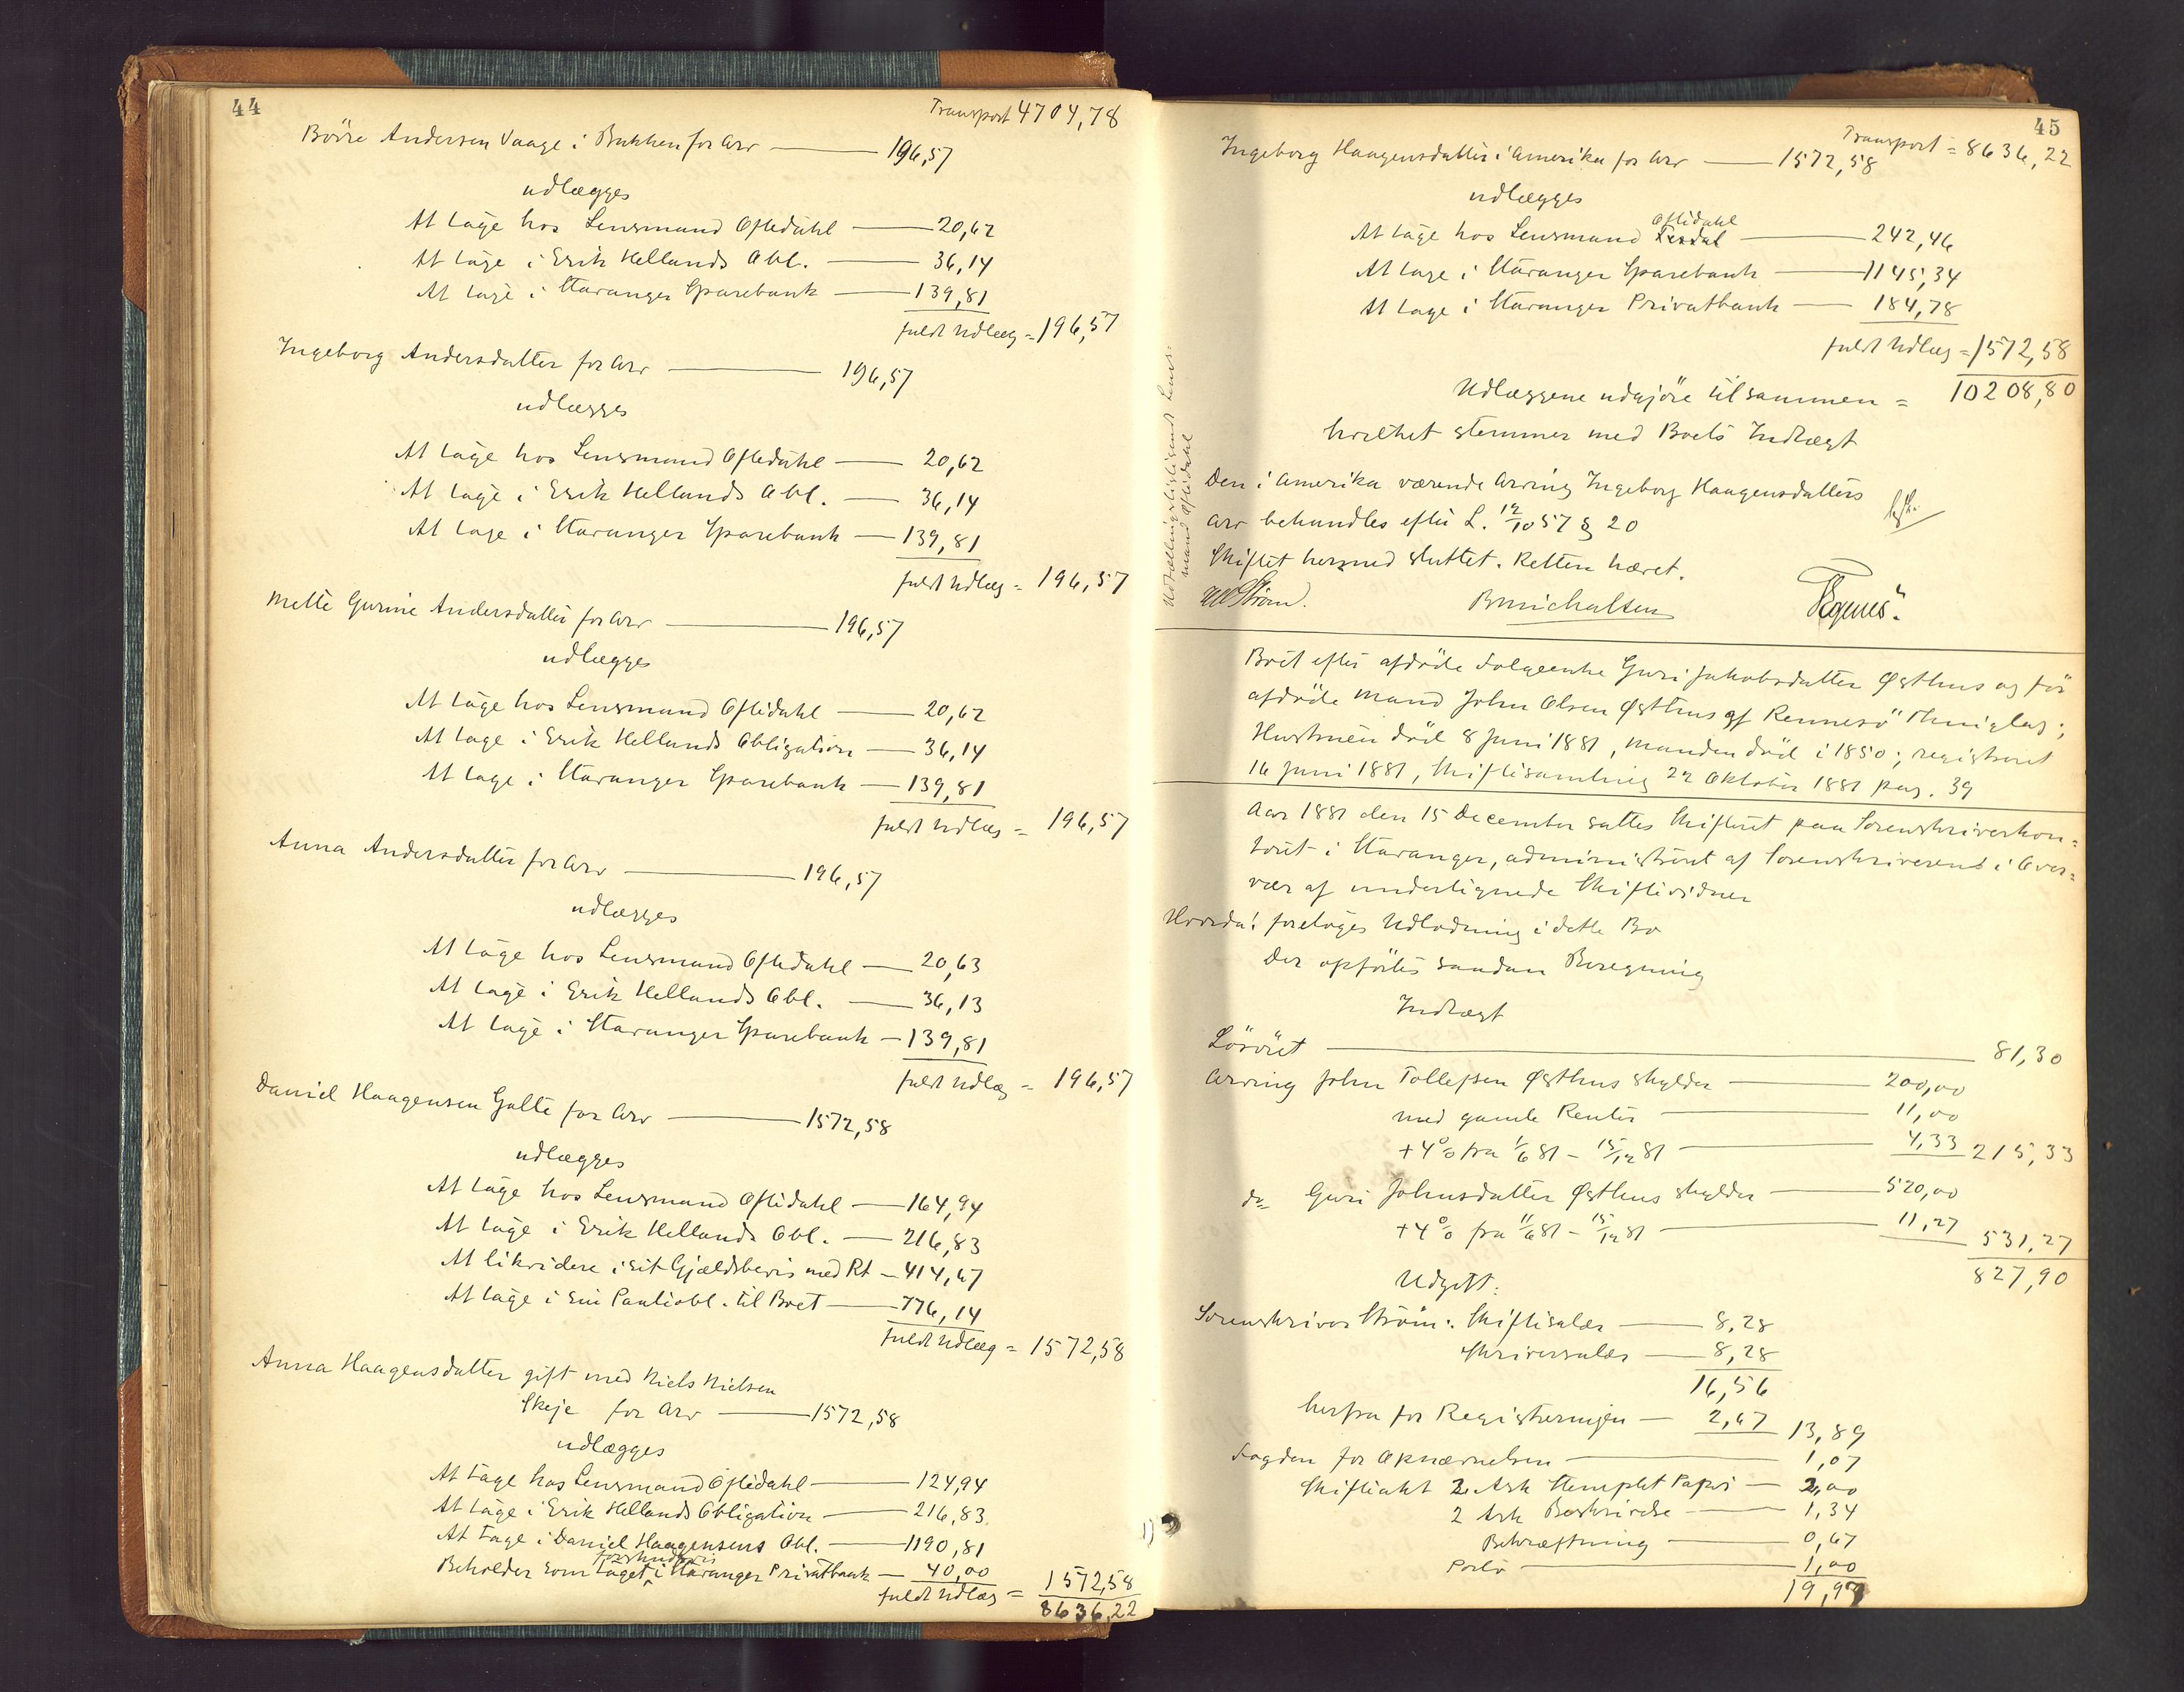 44
Transport 4704,78
Börre Andersen Vaage i Bukken for Arv — 196,57
udlægges
At tage hos Lensmand Oftedahl — 20,62
At tage i Erik Hellands Obl. — 36,14
At tage i Stavanger Sparebank — 139,81
fuldt Udlæg = 196,57
Ingeborg Andersdatter for Arv — 196,57
udlægges
At tage hos Lensmand Oftedahl — 20,62
At tage i Erik Hellands Obl. — 36,14
At tage i Stavanger Sparebank — 139,81
fuldt Udlæg = 196,57
Mette Gurine Andersdatter for Arv — 196,57
udlægges
At tage hos Lensmand Oftedahl — 20,62
At tage i Erik Hellands Obligation — 36,14
At tage i Stavanger Sparebank — 139,81
fuldt Udlæg = 196,57
Anna Andersdatter for Arv — 196,57
udlægges
At tage hos Lensmand Oftedahl — 20,63
At tage i Erik Hellands Obl. — 36,13
At tage i Stavanger Sparebank — 139,81
fuldt Udlæg = 196,57
Daniel Haagensen Galte for Arv — 1572,58
udlægges
At tage hos Lensmand Oftedahl — 164,94
At tage i Erik Hellands Obl. — 216,83
At likvidere i sit Gjældsbevis med Rt — 414,67
At tage i sin Panteobl. til Boet — 776,14
fuldt Udlæg = 1572,58
Anna Haagensdatter gift med Niels Nielsen
Skeje for Arv — 1572,58
udlægges
At tage hos Lensmand Oftedahl — 124,94
At tage i Erik Hellands Obligation — 216,83
At tage i Daniel Haagensens Obl. — 1190,81
Beholder som taget forskudsvis i Stavanger Privatbank — 40,00
fuldt Udlæg = 1572,58
8636,22
45
Transport = 8636,22
Ingeborg Haagensdatter i Amerika for Arv — 1572,58
udlægges
At tage hos Lensmand Oftedahl — 242,46
At tage i Stavanger Sparebank — 1145,34
At tage i Stavanger Privatbank — 184,78
fuldt Udlæg = 1572,58
Udlæggene udgjöre tilsammen = 10208,80
hvilket stemmer med Boets Indtægt
Den i Amerika værende Arving Ingeborg Haagensdatters
Arv behandles efter L. 12/10 57 § 20
Skiftet hermed sluttet. Retten hævet.
Ström. B Michalsen
mand Oftedahl
Boet efter afdöde Folgeenke Guri Jakobsdatter Østhus og för
afdöde Mand John Olsen Østhus af Rennesö Thinglag;
Hustruen död 8 Juni 1881, Manden död i 1850; registreret
16 Juni 1881, Skiftesamling 22 Oktober 1881 pag. 39
Aar 1881 den 15 December sattes Skifteret paa Sorenskriverkon=
toret i Stavanger, administreret af Sorenskriveren i Over=
vær af undertegnede Skiftevidner
Hvorda: foretoges Udlodning i dette Bo
Der opförtes saadan Beregning
Indtægt
Lösöret — 81,30
Arving John Tollefsen Østhus skylder — 200,00
med gamle Renter — 11,00
+ 4% fra 1/6 81 – 15/12 81 — 4,33 215,33
do Guri Johnsdatter Østhus skylder — 520,00
+ 4% fra 11/6 81 – 15/12 81 — 11,27 531,27
827,90
Udgift:
Sorenskriver Ström: Skiftesalær — 8,28
Skriversalær — 8,28
16,56
herfra for Registreringen — 2,67 13,89
Fogden for Aknærmelsen — 1,07
Skifteakt 2 Ark Stemplet Papir — 2,00
2 Ark Beskrivelse — 1,34
Bekræftning — 0,67
Porto — 1,00
19,97